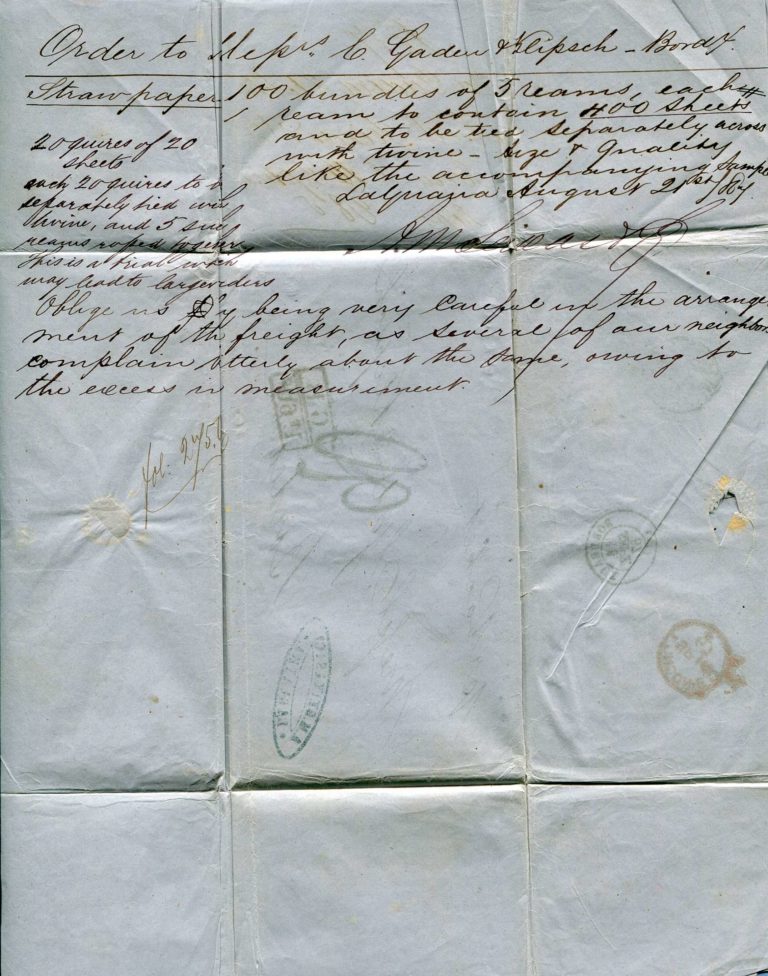 Order to Messrs C. Gaden & Klipsch - Bordx.
Straw paper 100 bundles of 5 reams, each
ream to contain 400 sheets
and to be tied separately across
with twine - Size & Quality
like the accompanying Sample
LaGuaira August 21st /67
20 quires of 20
sheets
each 20 quires to be
separately tied with
twine, and 5 such
reams roped together
this is a trial which
may lead to large orders
Oblige us by being very careful in the arrange
ment of the freight, as several of our neighbors
complain bitterly about the same, owing to
the excess in measurement.